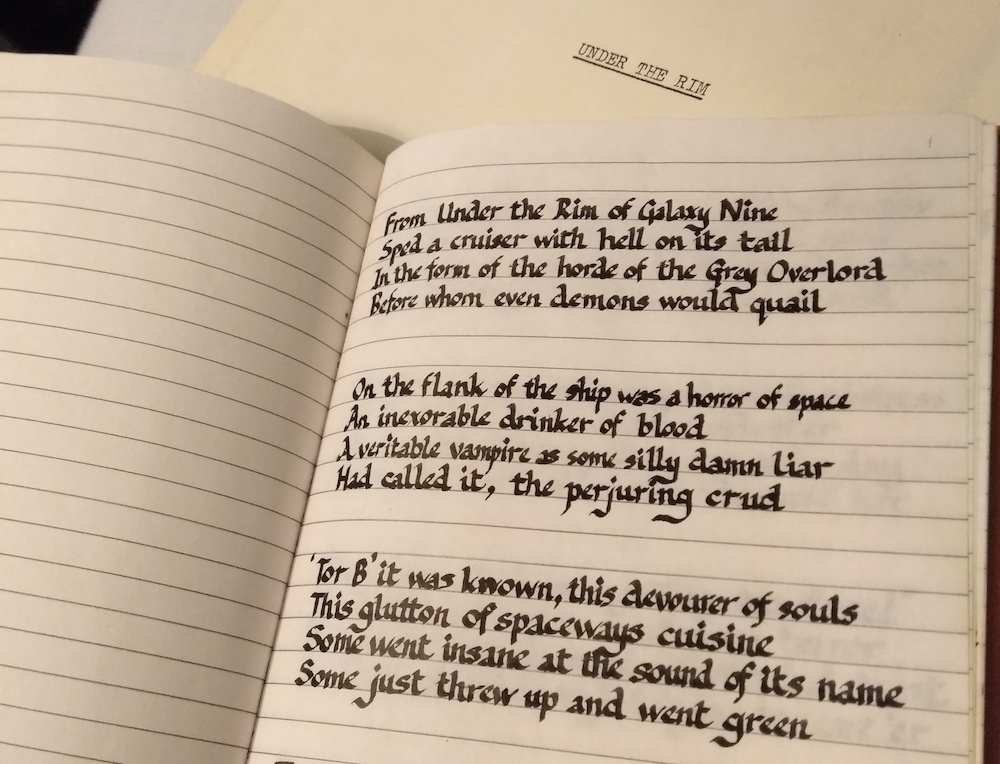 UNDER THE RIM
From Under the Rim of Galaxy Nine
Sped a cruiser with hell on its tail
In the form of the horde of the Grey Overlord
Before whom even demons would quail
On the flank of the ship was a horror of space
An inexorable drinker of blood
A veritable vampire as some silly damn liar
Had called it, the perjuring crud
'Tor B' it was known, this devourer of souls
This glutton of spaceways cuisine
Some went insane at the sound of its name
Some just threw up and went green